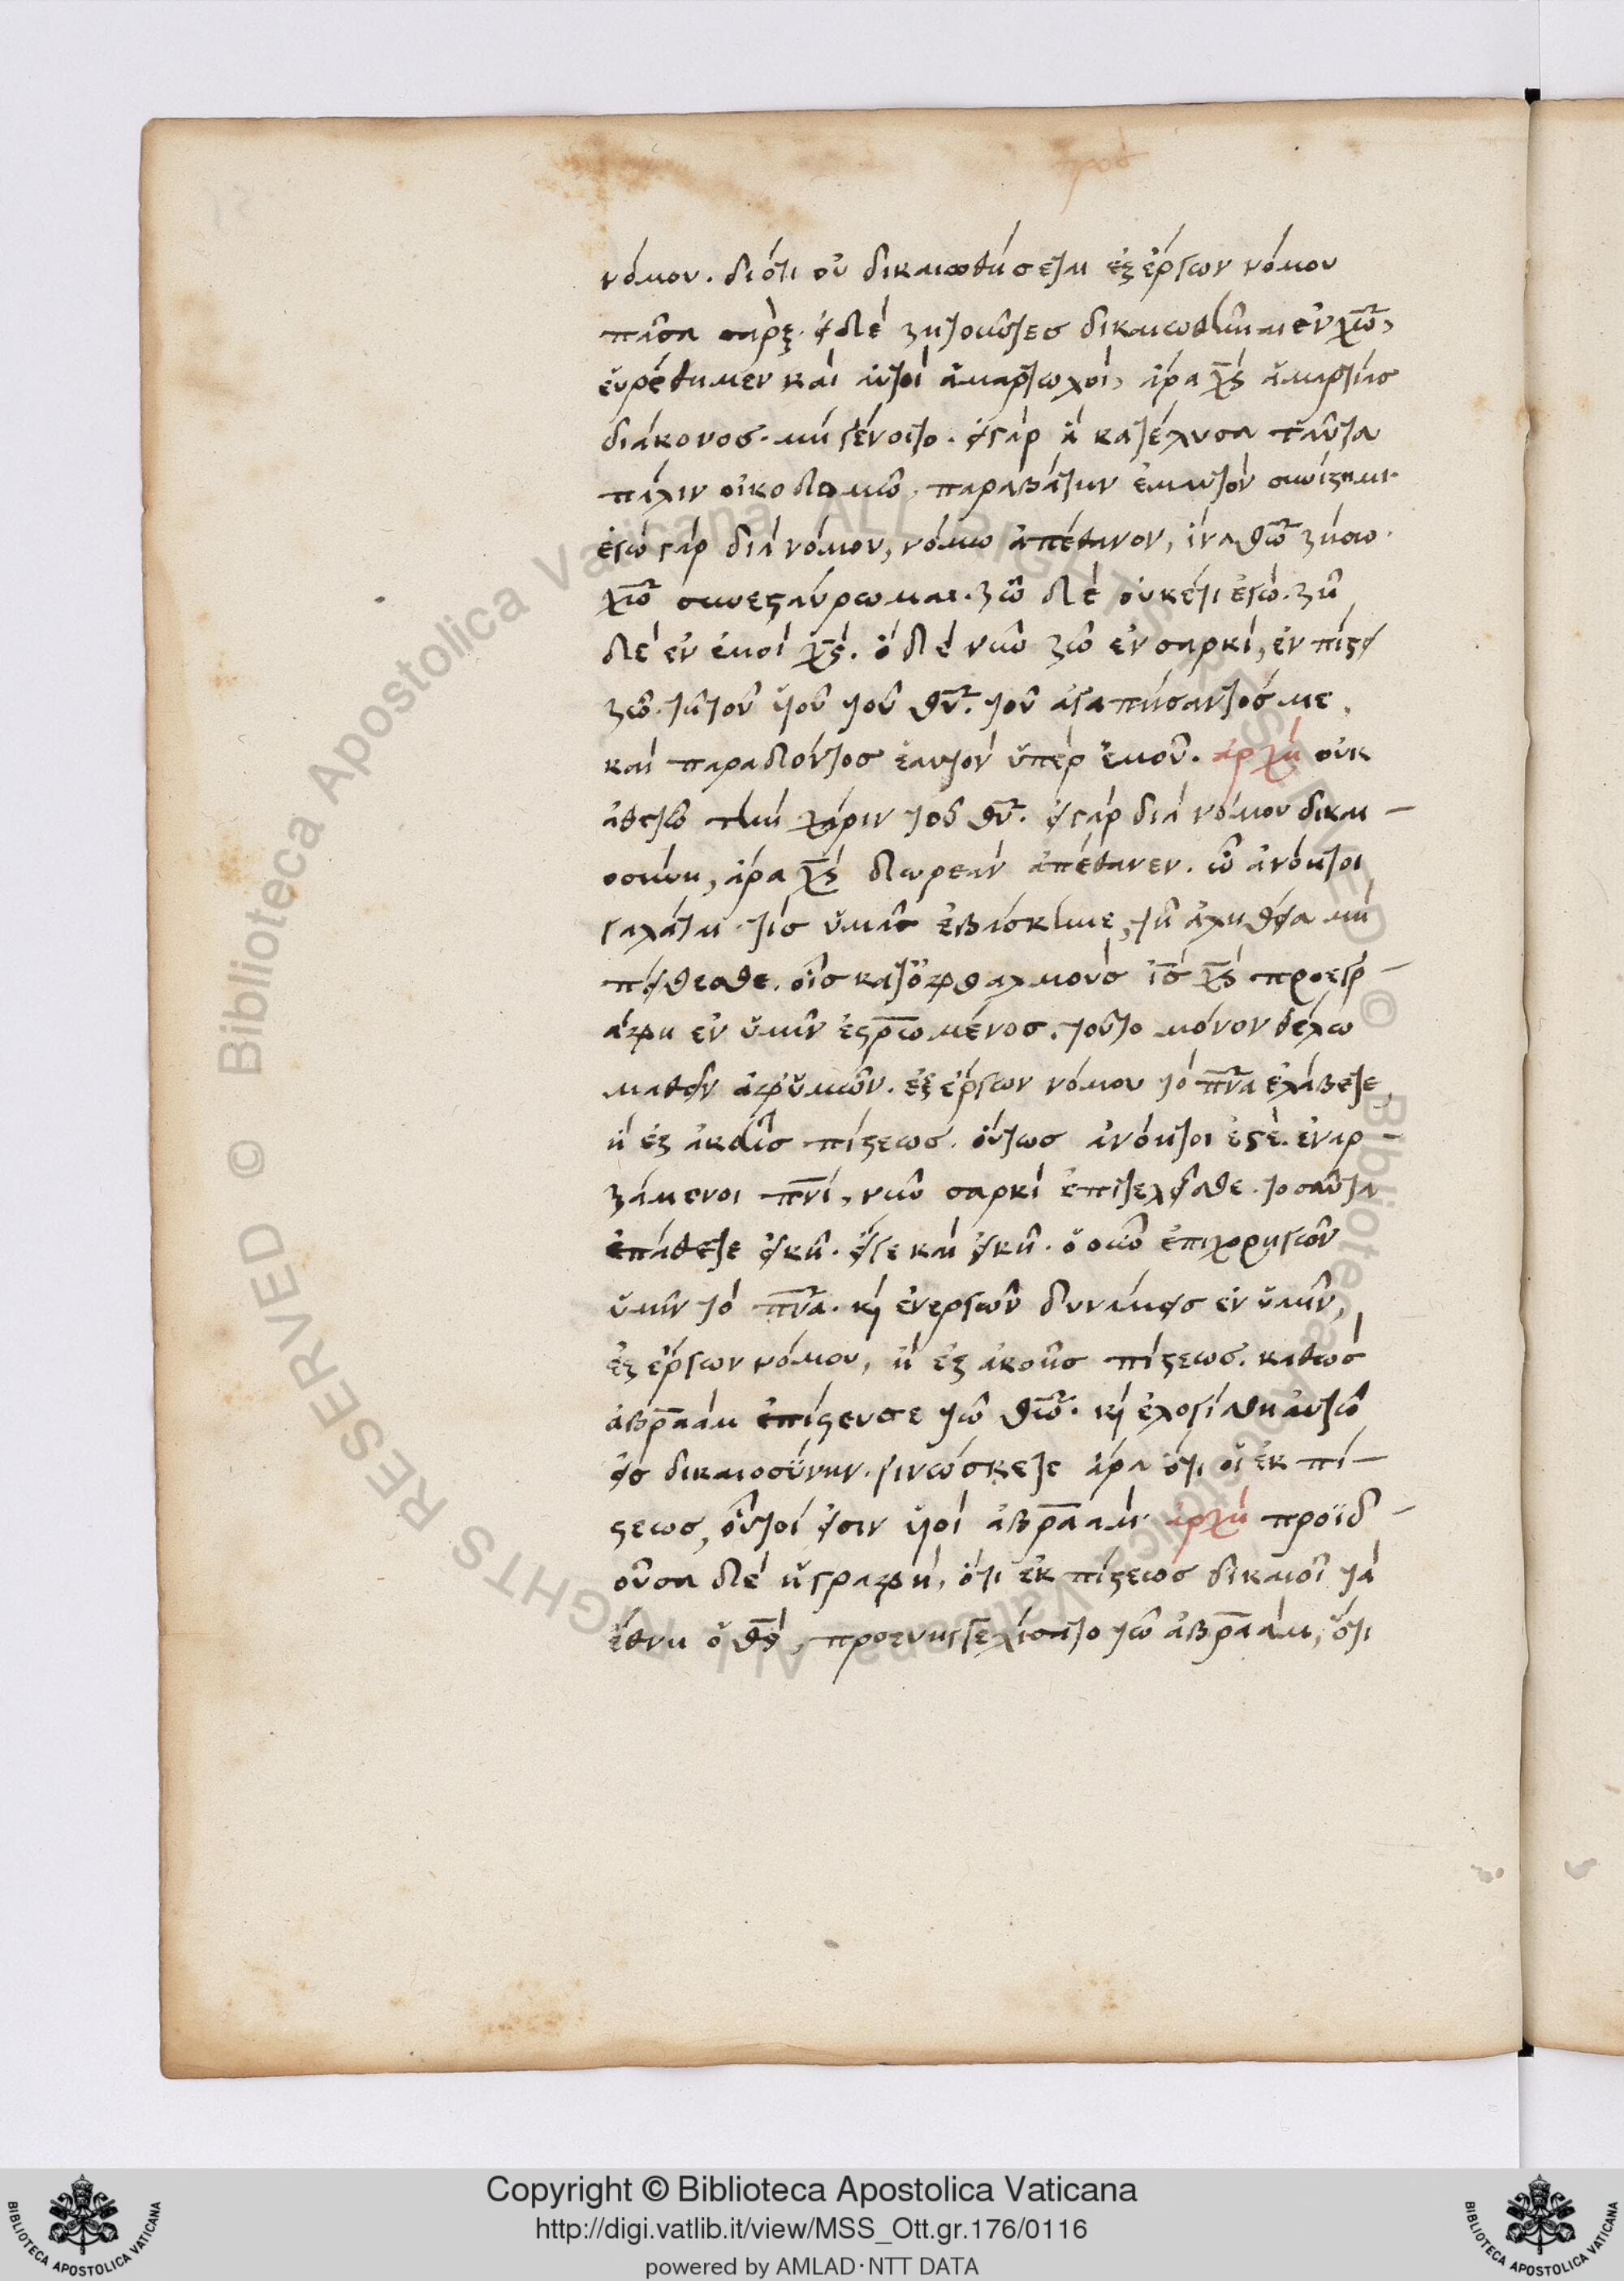 νόμου. διότι οὐ δικαιωθήσεται ἐξ ἔργων νόμου
πᾶσα σάρξ. εἰ δὲ ζητοῦντες δικαιωθῆναι ἐν χῶ,
εὑρέθημεν καὶ αὐτοὶ ἁμαρτωλοί, ἄρα χς ἁμαρτίας
διάκονος. μὴ γένοιτο. εἰ γὰρ ἃ κατέλυσα ταῦτα
πάλιν οἰκοδομῶ, παραβάτην ἐμαυτὸν συνίστημι.
ἐγὼ γὰρ διὰ νόμου, νόμω ἀπέθανον, ἵνα θῶ ζήσω.
χῶ συνεσταύρωμαι. ζῶ δὲ οὐκέτι ἐγώ. ζῆ
δὲ ἐν ἐμοὶ χς. ὃ δὲ νῦν ζῶ ἐν σαρκὶ, ἐν πίστει
ζῶ. τῆ τοῦ ὑοῦ τοῦ θῦ. τοῦ ἀγαπήσαντός με,
καὶ παραδόντος ἑαυτὸν ὑπὲρ ἐμοῦ. ἀρχὴ οὐκ
ἀθετῶ τὴν χάριν τοῦ θῦ. εἰ γὰρ διὰ νόμου δικαι-
οσύνη, ἄρα χς δωρεὰν ἀπέθανεν. ὦ ἀνόητοι
γαλάται. τίς ὑμᾶς ἐβάσκηνε, τῆ ἀληθεία μὴ
πείθεσθε. οἷς κατ' ὀφθαλμοὺς ἰς χς προεγρ-
άφη ἐν ὑμῖν ἐστρωμένος. τοῦτο μόνον θέλω
μαθεῖν ἀφ' ὑμῶν. ἐξ ἔργων νόμου τὸ πνα ἐλάβετε,
ἢ ἐξ ἀκοῆς πίστεως. οὕτως ἀνόητοι ἐστέ. ἐναρ-
ξάμενοι πνι, νῦν σαρκὶ ἐπιτελεῖσθε. τοσαῦτα
ἐπάθετε εἰκῆ. εἴγε καὶ εἰκῆ. ὁ οὖν ἐπιχορηγῶν
ὑμῖν τὸ πνα. κὶ ἐνεργῶν δυνάμεις ἐν ὑμῖν,
ἐξ ἔργων νόμου, ἢ ἐξ ἀκοῆς πίστεως. καθὼς
ἀβραὰμ ἐπίστευσε τῶ θῶ. κὶ ἐλογίσθη αὐτῶ
εἰς δικαιοσύνην. γινώσκετε ἄρα ὅτι οἱ ἐκ πί-
στεως, οὗτοί εἰσιν ὑοὶ ἀβραάμ. ἀρχὴ προϊδ-
οῦσα δὲ ἡ γραφὴ, ὅτι ἐκ πίστεως δικαιοῖ τὰ
ἔθνη ὁ θς, προευηγγελίσατο τῶ ἀβραὰμ, ὅτι
Copyright © Biblioteca Apostolica Vaticana
http://digi.vatlib.it/view/MSS_Ott.gr.176/0116
powered by AMLAD·NTT DATA
BIBLIOTECA APOSTOLICA VATICANA
BIBLIOTECA APOSTOLICA VATICANA